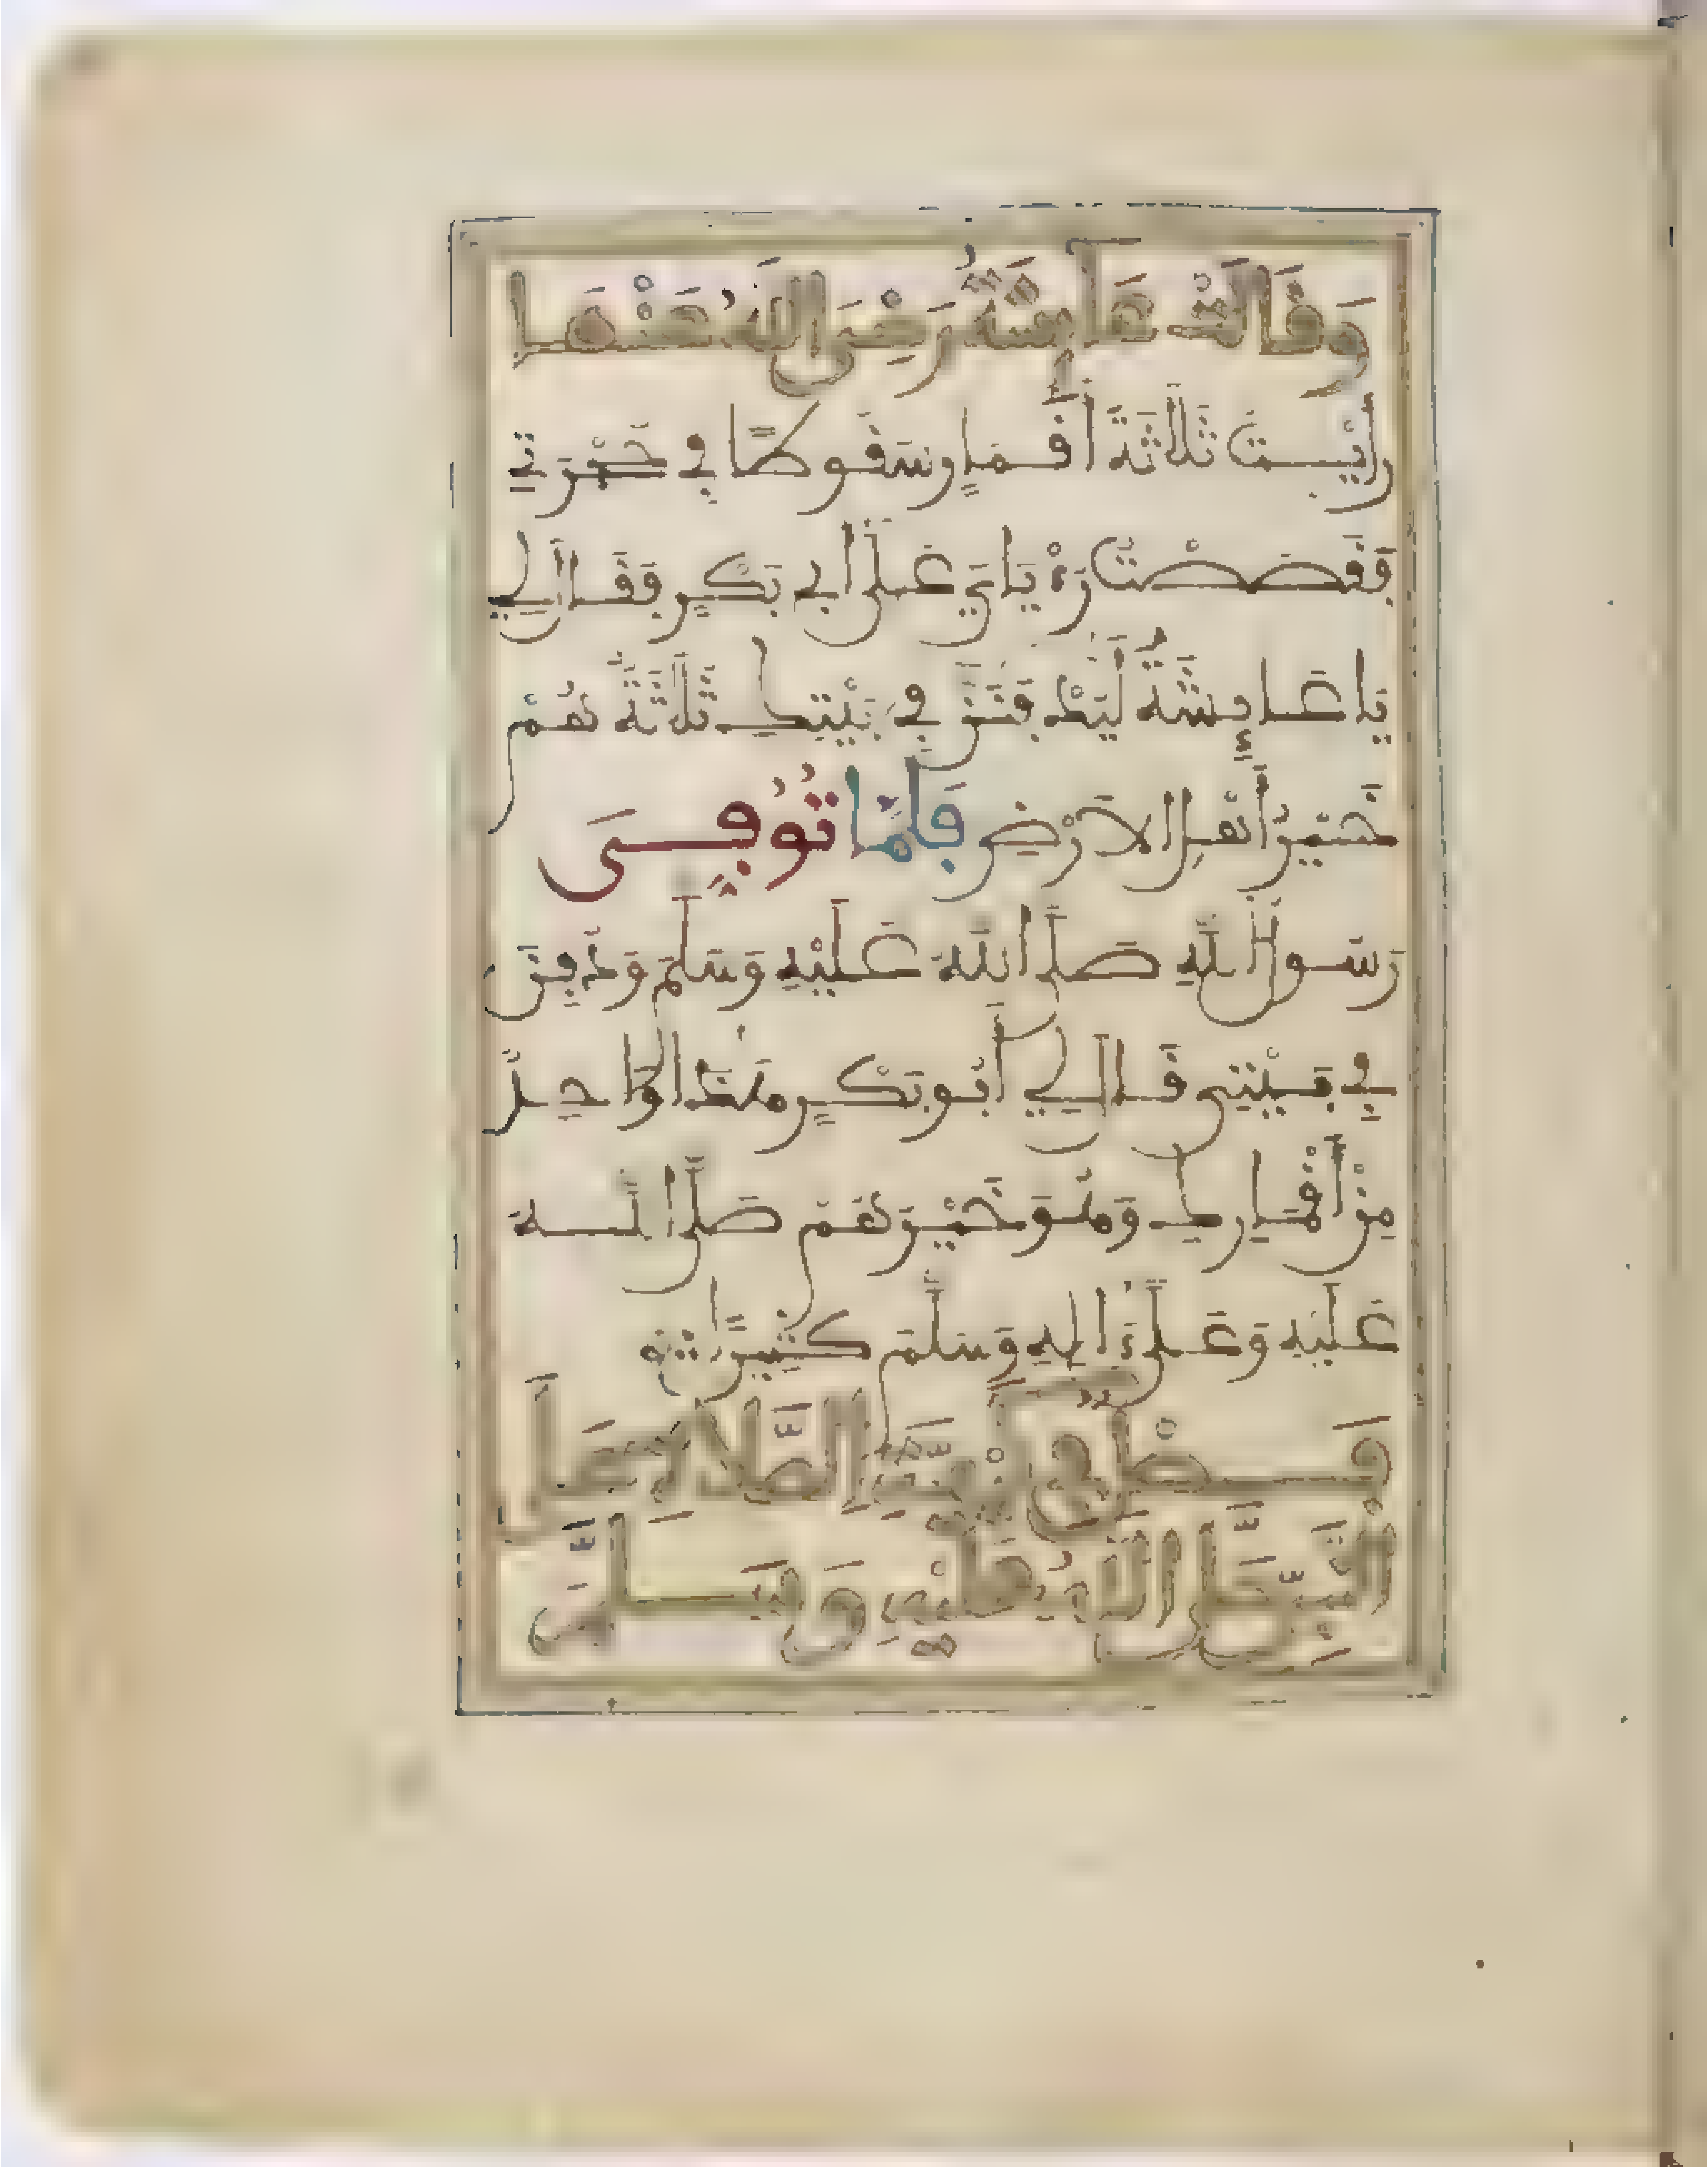 وَقَالَتْ عَآئِشَةُ رَضِيَ اللَّهُ عَنْهَا
رَأَيْتُ ثَلَاثَةَ أَقْمَارٍ سُقُوطًا فِي حُجْرَتِي
فَقَصَصْتُ رُءْيَايَ عَلَى أَبِي بَكْرٍ فَقَالَ لِي
يَا عَائِشَةُ لَيُدْفَنَنَّ فِي بَيْتِكِ ثَلَاثَةٌ هُمْ
خَيْرُ أَهْلِ الْأَرْضِ فَلَمَّا تُوُفِّيَ
رَسُولُ اللَّهِ صَلَّى اللَّهُ عَلَيْهِ وَسَلَّمَ وَدُفِنَ
فِي بَيْتِي قَالَ لِي أَبُو بَكْرٍ هَذَا وَاحِدٌ
مِنْ أَقْمَارِكِ وَهُوَ خَيْرُهُمْ صَلَّى اللَّهُ
عَلَيْهِ وَعَلَى ءَالِهِ وَسَلَّمَ كَثِيرًا
فَصْلٌ فِي كَيْفِيَّةِ الصَّلَاةِ عَلَى
النَّبِيِّ صَلَّى اللَّهُ عَلَيْهِ وَسَلَّمَ